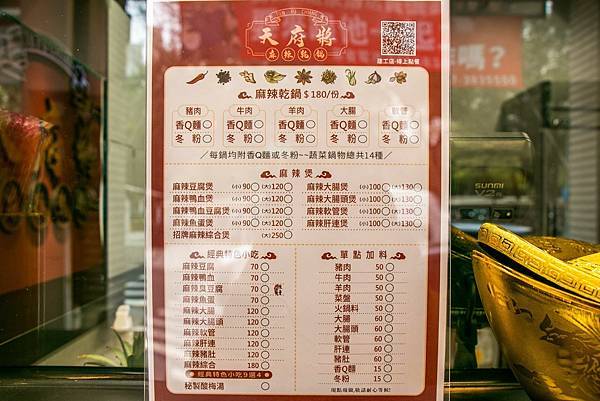 天府將
麻辣乾鍋
建工店-線上點餐
麻辣乾鍋$180/份
豬肉 牛肉 羊肉 大腸 軟管
香Q麵○ 香Q麵○ 香Q麵○ 香Q麵○ 香Q麵○
冬 粉○ 冬 粉○ 冬 粉○ 冬 粉○ 冬 粉○
／每鍋均附香Q麵或冬粉~~蔬菜鍋物總共14種／
麻辣煲
麻辣豆腐煲 (小)90○(大)120○ 麻辣大腸煲 (小)100○(大)130○
麻辣鴨血煲 (小)90○(大)120○ 麻辣大腸頭煲 (小)100○(大)130○
麻辣鴨血豆腐煲 (小)90○(大)120○ 麻辣軟管煲 (小)100○(大)130○
麻辣魚蛋煲 (小)90○(大)120○ 麻辣肝連煲 (小)100○(大)130○
招牌麻辣綜合煲 (大)250○
經典特色小吃
麻辣豆腐 70 ○
麻辣鴨血 70 ○
麻辣臭豆腐 70 ○
麻辣魚蛋 70 ○
麻辣大腸 120 ○
麻辣大腸頭 120 ○
麻辣軟管 120 ○
麻辣肝連 120 ○
麻辣豬肚 120 ○
麻辣綜合 180 ○
經典特色小吃9選4
秘製酸梅湯 ○
單點加料
豬肉 50 ○
牛肉 50 ○
羊肉 50 ○
菜盤 50 ○
火鍋料 50 ○
大腸 60 ○
大腸頭 60 ○
軟管 60 ○
肝連 60 ○
豬肚 60 ○
香Q麵 15 ○
冬粉 15 ○
現點現做,敬請耐心等候!
SUNMI
V2